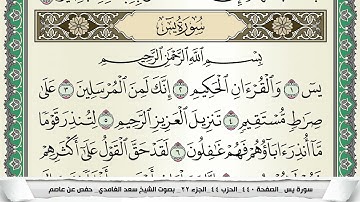 سورة يس
بِسْمِ اللَّهِ الرَّحْمَٰنِ الرَّحِيمِ
يسٓ ١ وَالْقُرْءَانِ الْحَكِيمِ ٢ إِنَّكَ لَمِنَ الْمُرْسَلِينَ ٣ عَلَىٰ
صِرَاطٍ مُّسْتَقِيمٍ ٤ تَنزِيلَ الْعَزِيزِ الرَّحِيمِ ٥ لِتُنذِرَ قَوْمًا
مَّا أُنذِرَ ءَابَاؤُهُمْ فَهُمْ غَٰفِلُونَ ٦ لَقَدْ حَقَّ الْقَوْلُ عَلَىٰ أَكْثَرِهِمْ
سورة يس _ الصفحة ٤٤٠ _ الحزب ٤٤ _ الجزء ٢٢ _ بصوت الشيخ سعد الغامدي _ حفص عن عاصم